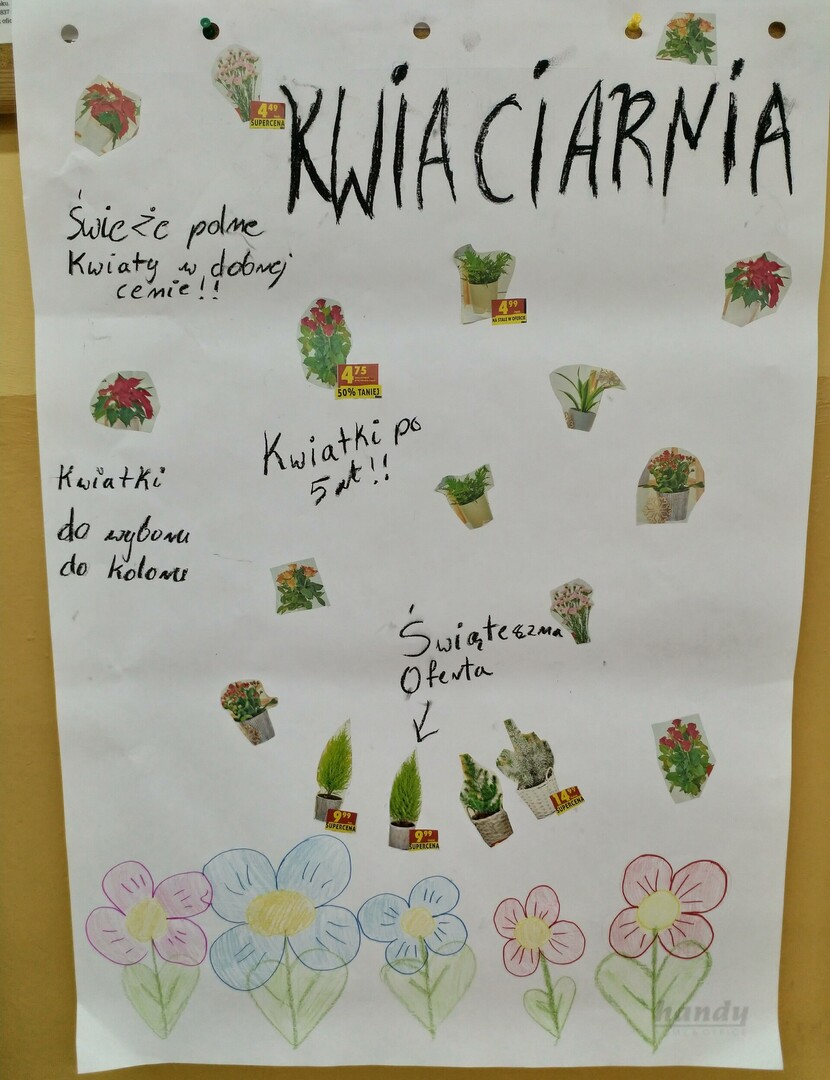 KWIACIARNIA
4 49
SUPERCENA
Świeże polne
Kwiaty w dobrej
cenie!!
4 99
4 75
50% TANIEJ
Kwiatki po
5 zł!!
Kwiatki
do wyboru
do koloru
Świąteczna
Oferta
9 99
SUPERCENA
9 99
SUPERCENA
14 99
SUPERCENA
handy